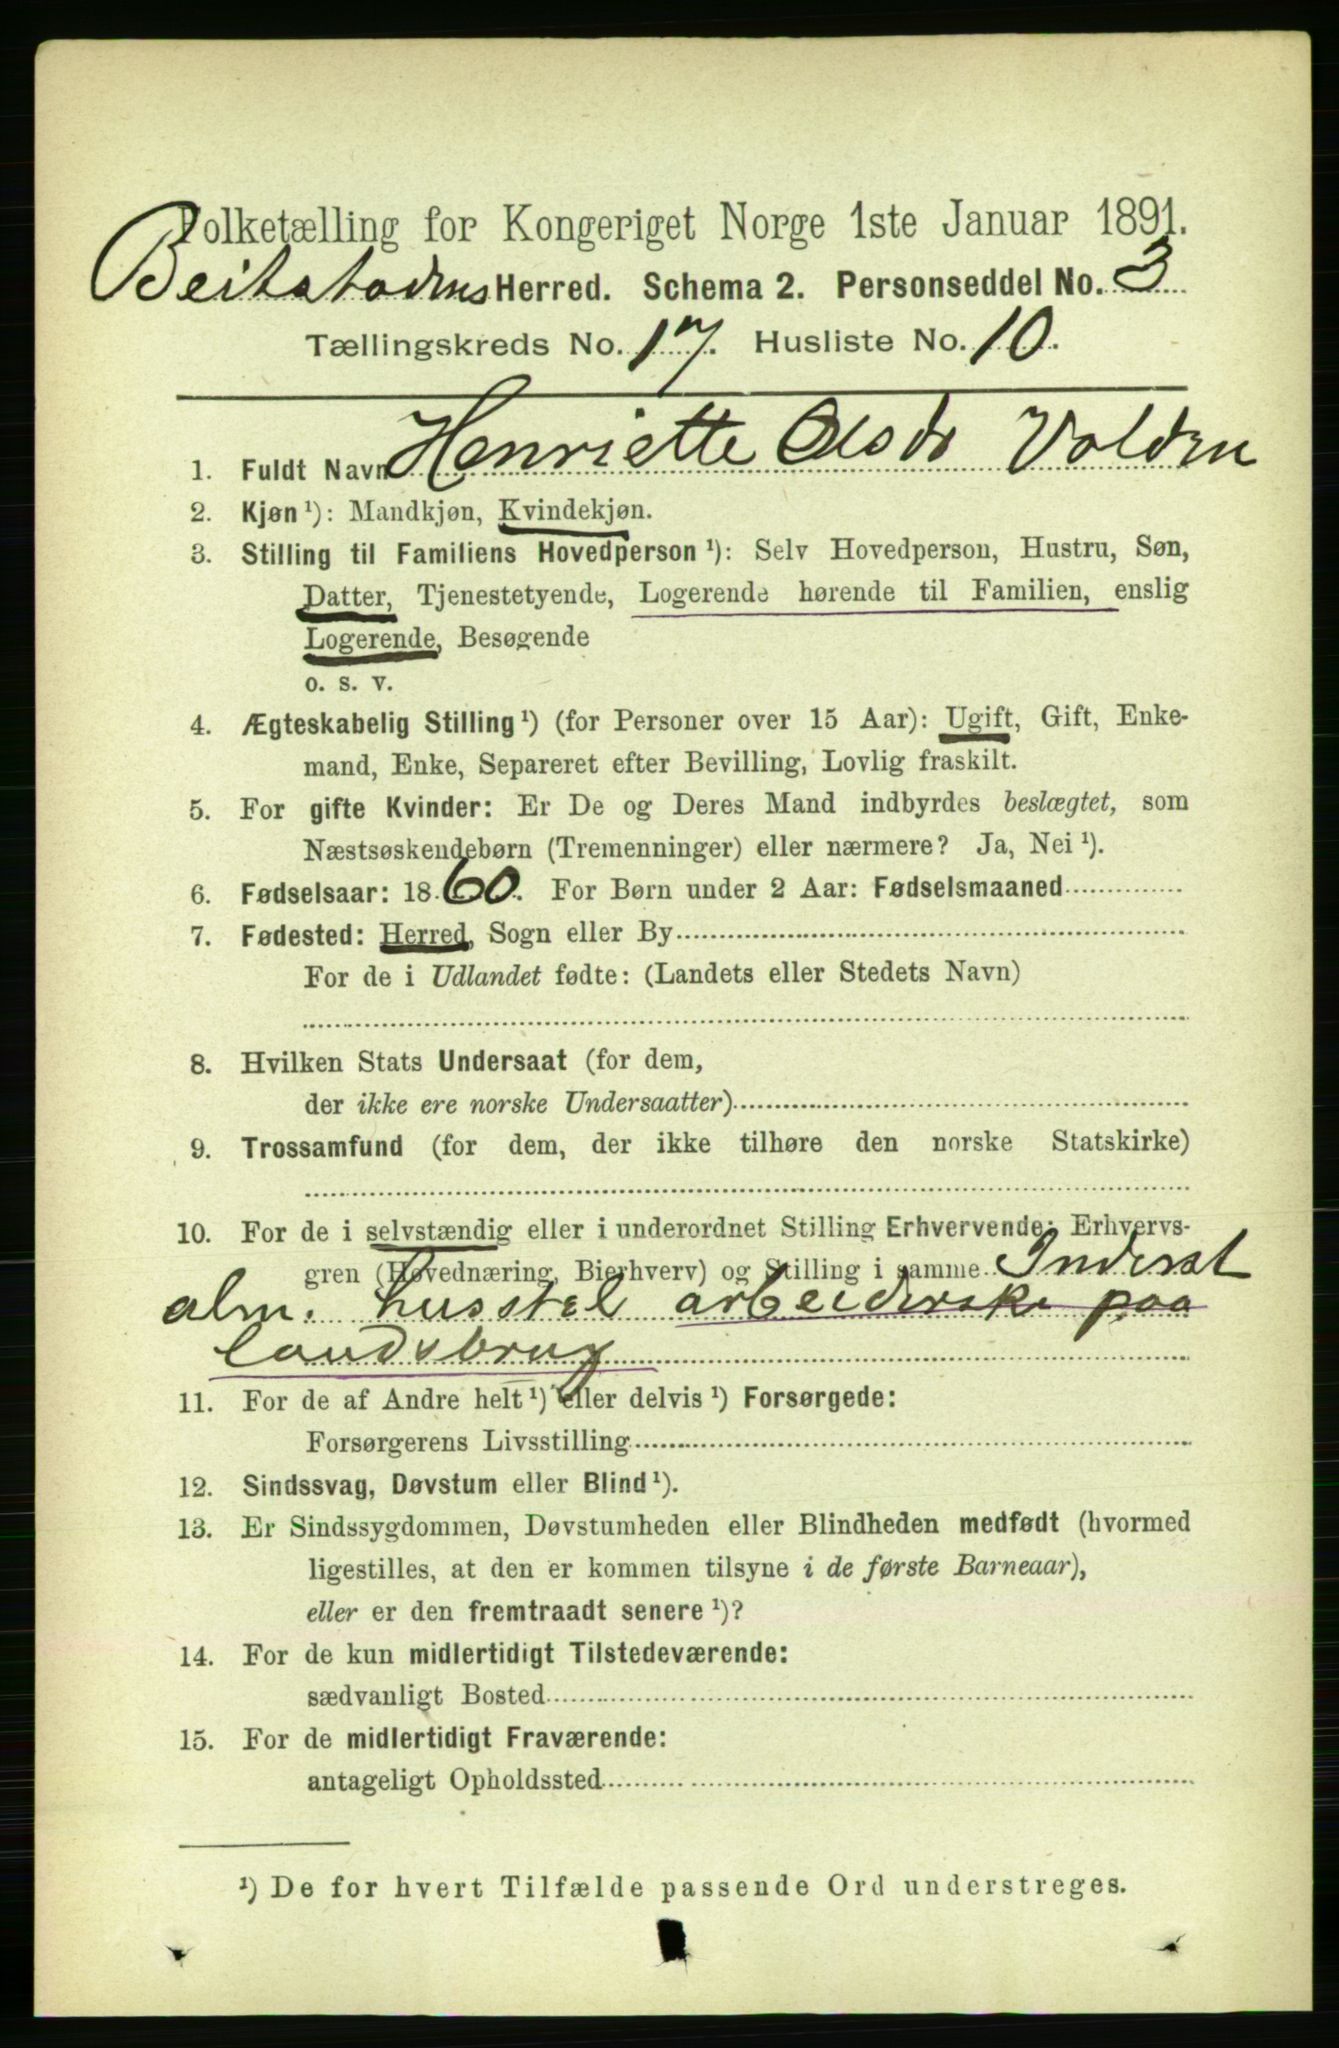 Folketælling for Kongeriget Norge 1ste Januar 1891.
Beitstadens Herred. Schema 2. Personseddel No. 3
Tællingskreds No. 17. Husliste No. 10.
1. Fuldt Navn Henriette Olsdr Volden
2. Kjøn ¹): Mandkjøn, Kvindekjøn.
3. Stilling til Familiens Hovedperson ¹): Selv Hovedperson, Hustru, Søn,
Datter, Tjenestetyende, Logerende hørende til Familien, enslig
Logerende, Besøgende
o. s. v.
4. Ægteskabelig Stilling ¹) (for Personer over 15 Aar): Ugift, Gift, Enke-
mand, Enke, Separeret efter Bevilling, Lovlig fraskilt.
5. For gifte Kvinder: Er De og Deres Mand indbyrdes beslægtet, som
Næstsøskendebørn (Tremenninger) eller nærmere? Ja, Nei ¹).
6. Fødselsaar: 1860. For Børn under 2 Aar: Fødselsmaaned
7. Fødested: Herred, Sogn eller By
For de i Udlandet fødte: (Landets eller Stedets Navn)
8. Hvilken Stats Undersaat (for dem,
der ikke ere norske Undersaatter)
9. Trossamfund (for dem, der ikke tilhøre den norske Statskirke)
10. For de i selvstændig eller i underordnet Stilling Erhvervende: Erhvervs-
gren (Hovednæring, Bierhverv) og Stilling i samme Inderst
alm. husstel arbeiderske paa
landsbrug
11. For de af Andre helt ¹) eller delvis ¹) Forsørgede:
Forsørgerens Livsstilling
12. Sindssvag, Døvstum eller Blind ¹).
13. Er Sindssygdommen, Døvstumheden eller Blindheden medfødt (hvormed
ligestilles, at den er kommen tilsyne i de første Barneaar),
eller er den fremtraadt senere ¹)?
14. For de kun midlertidigt Tilstedeværende:
sædvanligt Bosted
15. For de midlertidigt Fraværende:
antageligt Opholdssted
¹) De for hvert Tilfælde passende Ord understreges.